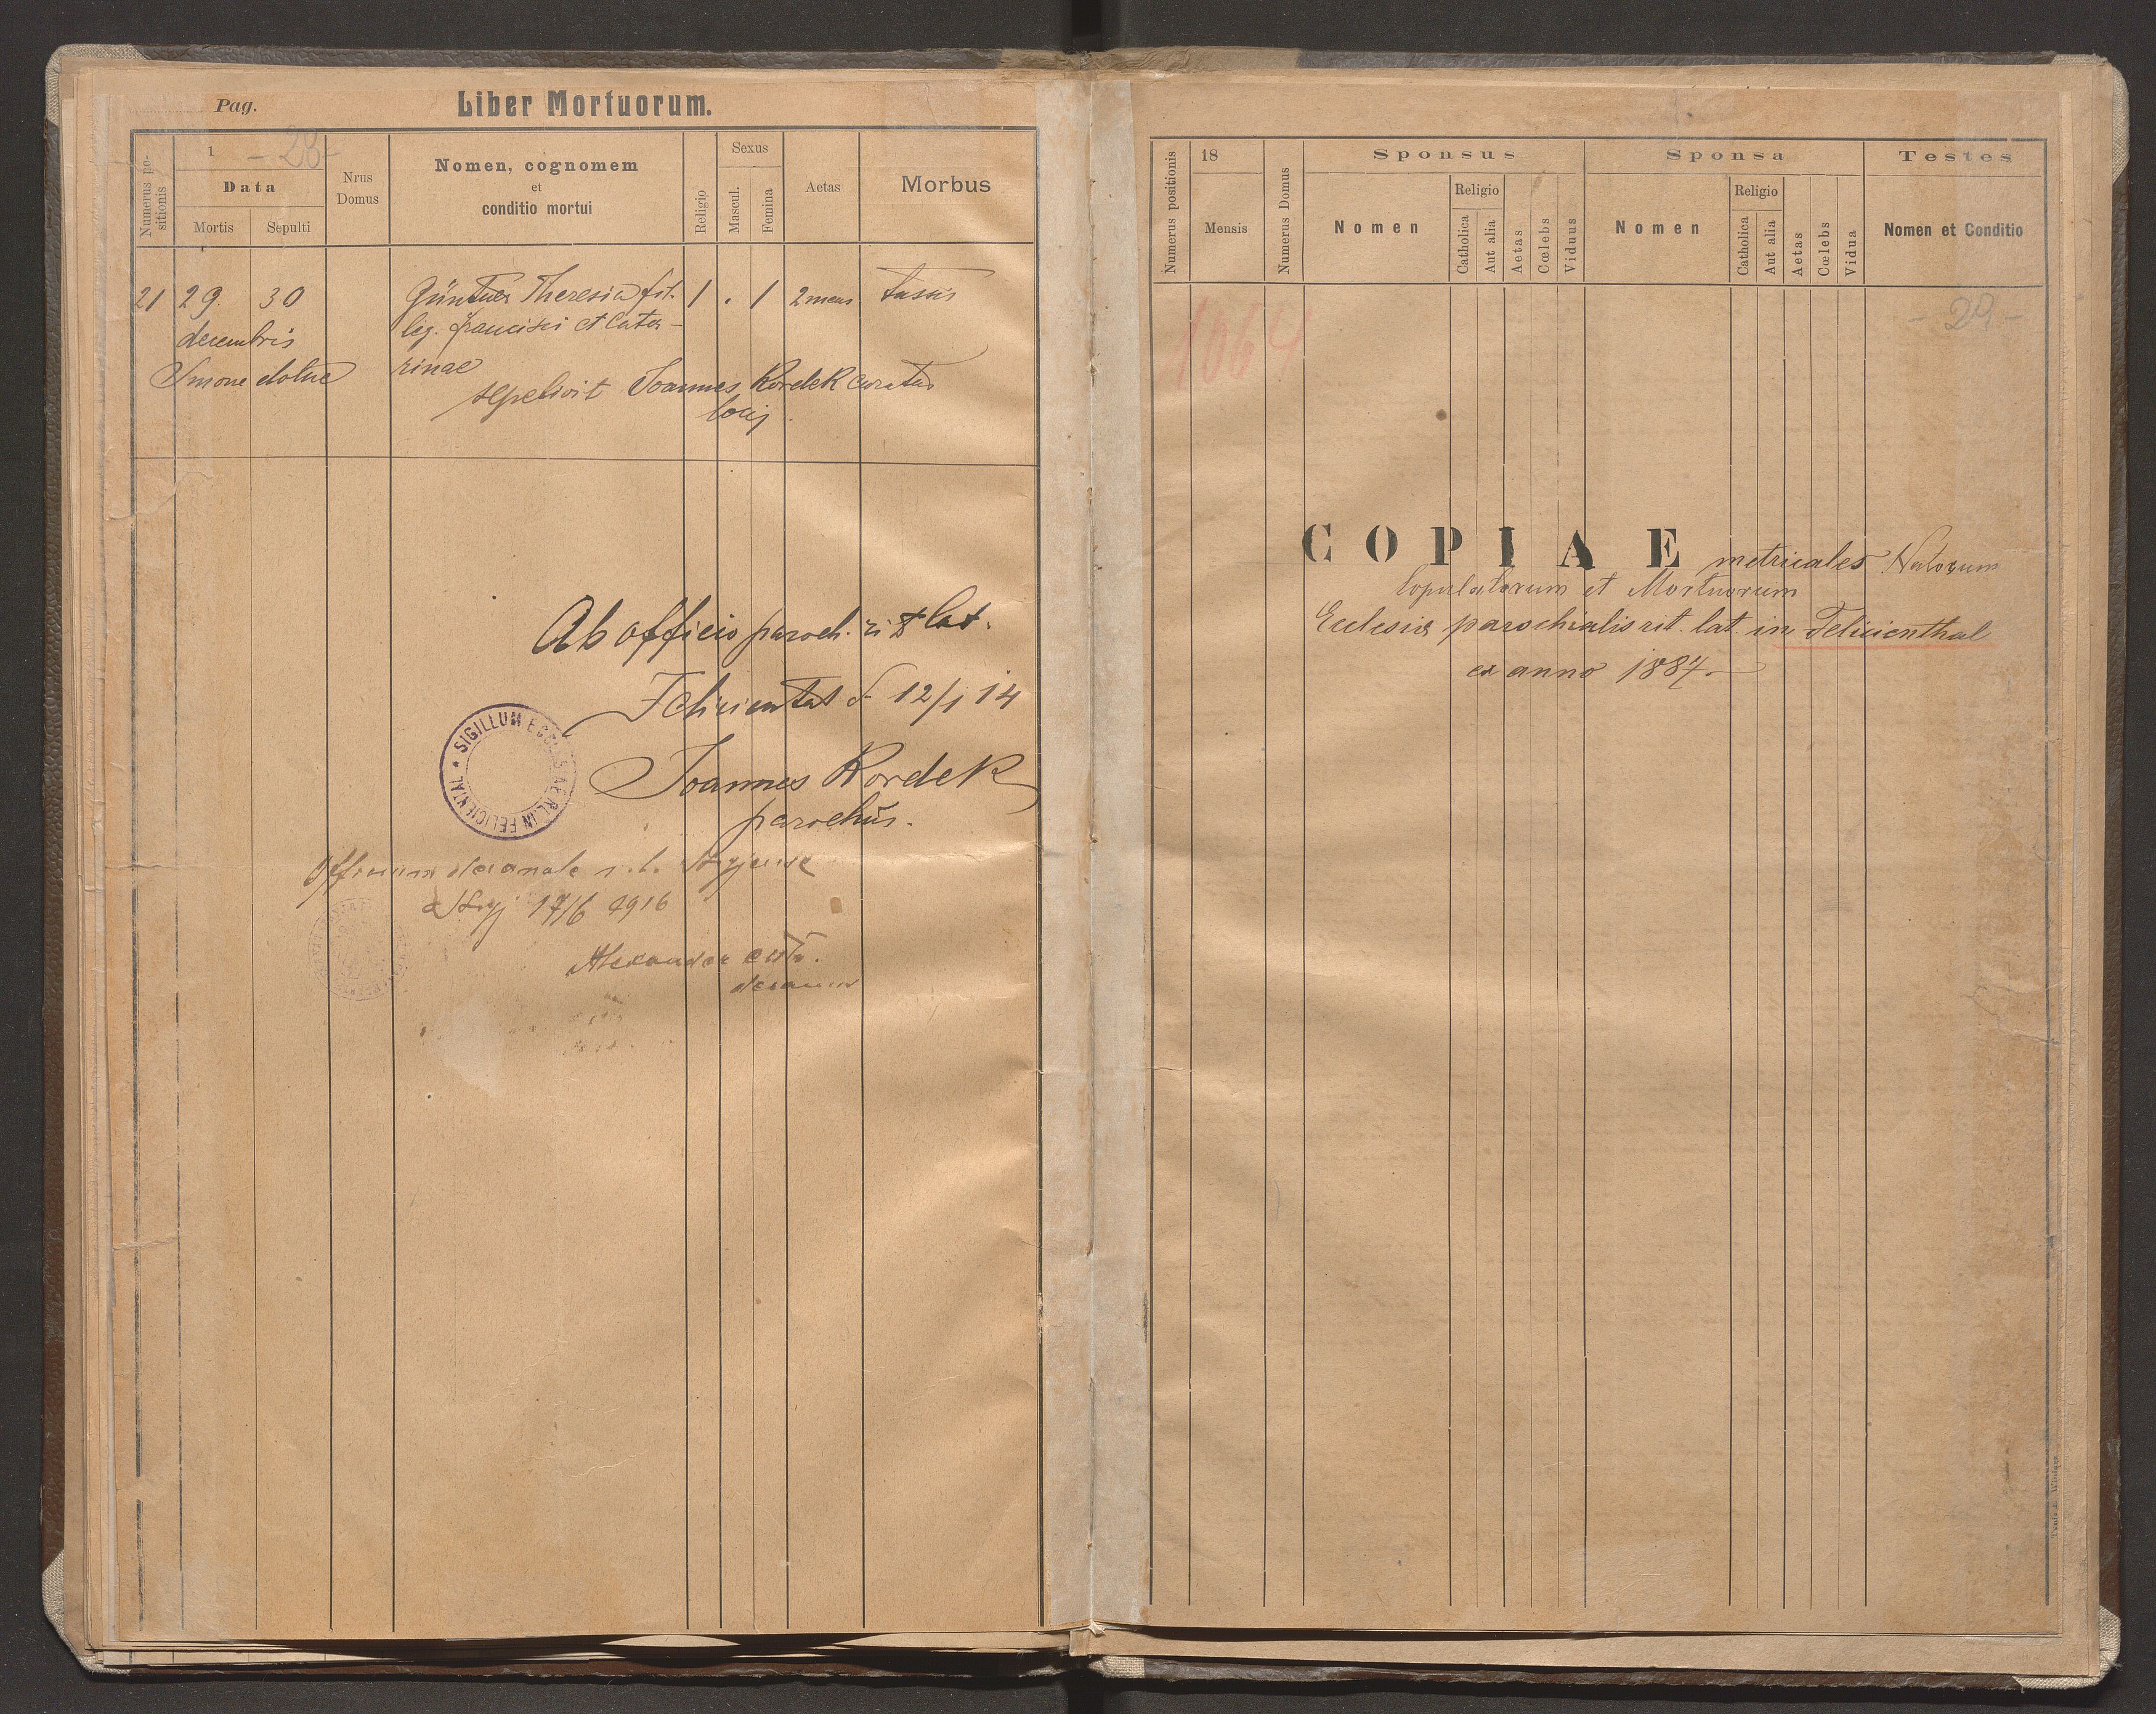 Pag.
Liber Mortuorum.
Numerus po-
sitionis
1
- 28 -
Data
Mortis
Sepulti
Nrus
Domus
Nomen, cognomem
et
conditio mortui
Religio
Sexus
Mascul.
Femina
Aetas
Morbus
21 29. 30 Theresia fil. 1 . 1 2 mens tussis
decembris leg. Francisci et Cata-
Smorze dolne rinae
sepelivit Joannes Kordek curatus
loci.
Ab officio paroch. rit lat.
Felicientat d. 12/1 14
SIGILLUM ECCLESIAE R.L. IN FELICIENTAL
Joannes Kordek
parochus.
Officium decanale r. l. Stryjense
Stryj 17/6 1916
Alexander
decanus
Numerus positionis
18
Mensis
Numerus Domus
Sponsus
Nomen
Religio
Catholica
Aut alia
Aetas
Cœlebs
Viduus
Sponsa
Nomen
Religio
Catholica
Aut alia
Aetas
Cœlebs
Vidua
Testes
Nomen et Conditio
1064
- 29 -
COPIAE metricales Natorum
Copulatorum et Mortuorum
Ecclesiæ parochialis rit. lat. in Felicienthal
ex anno 1887.